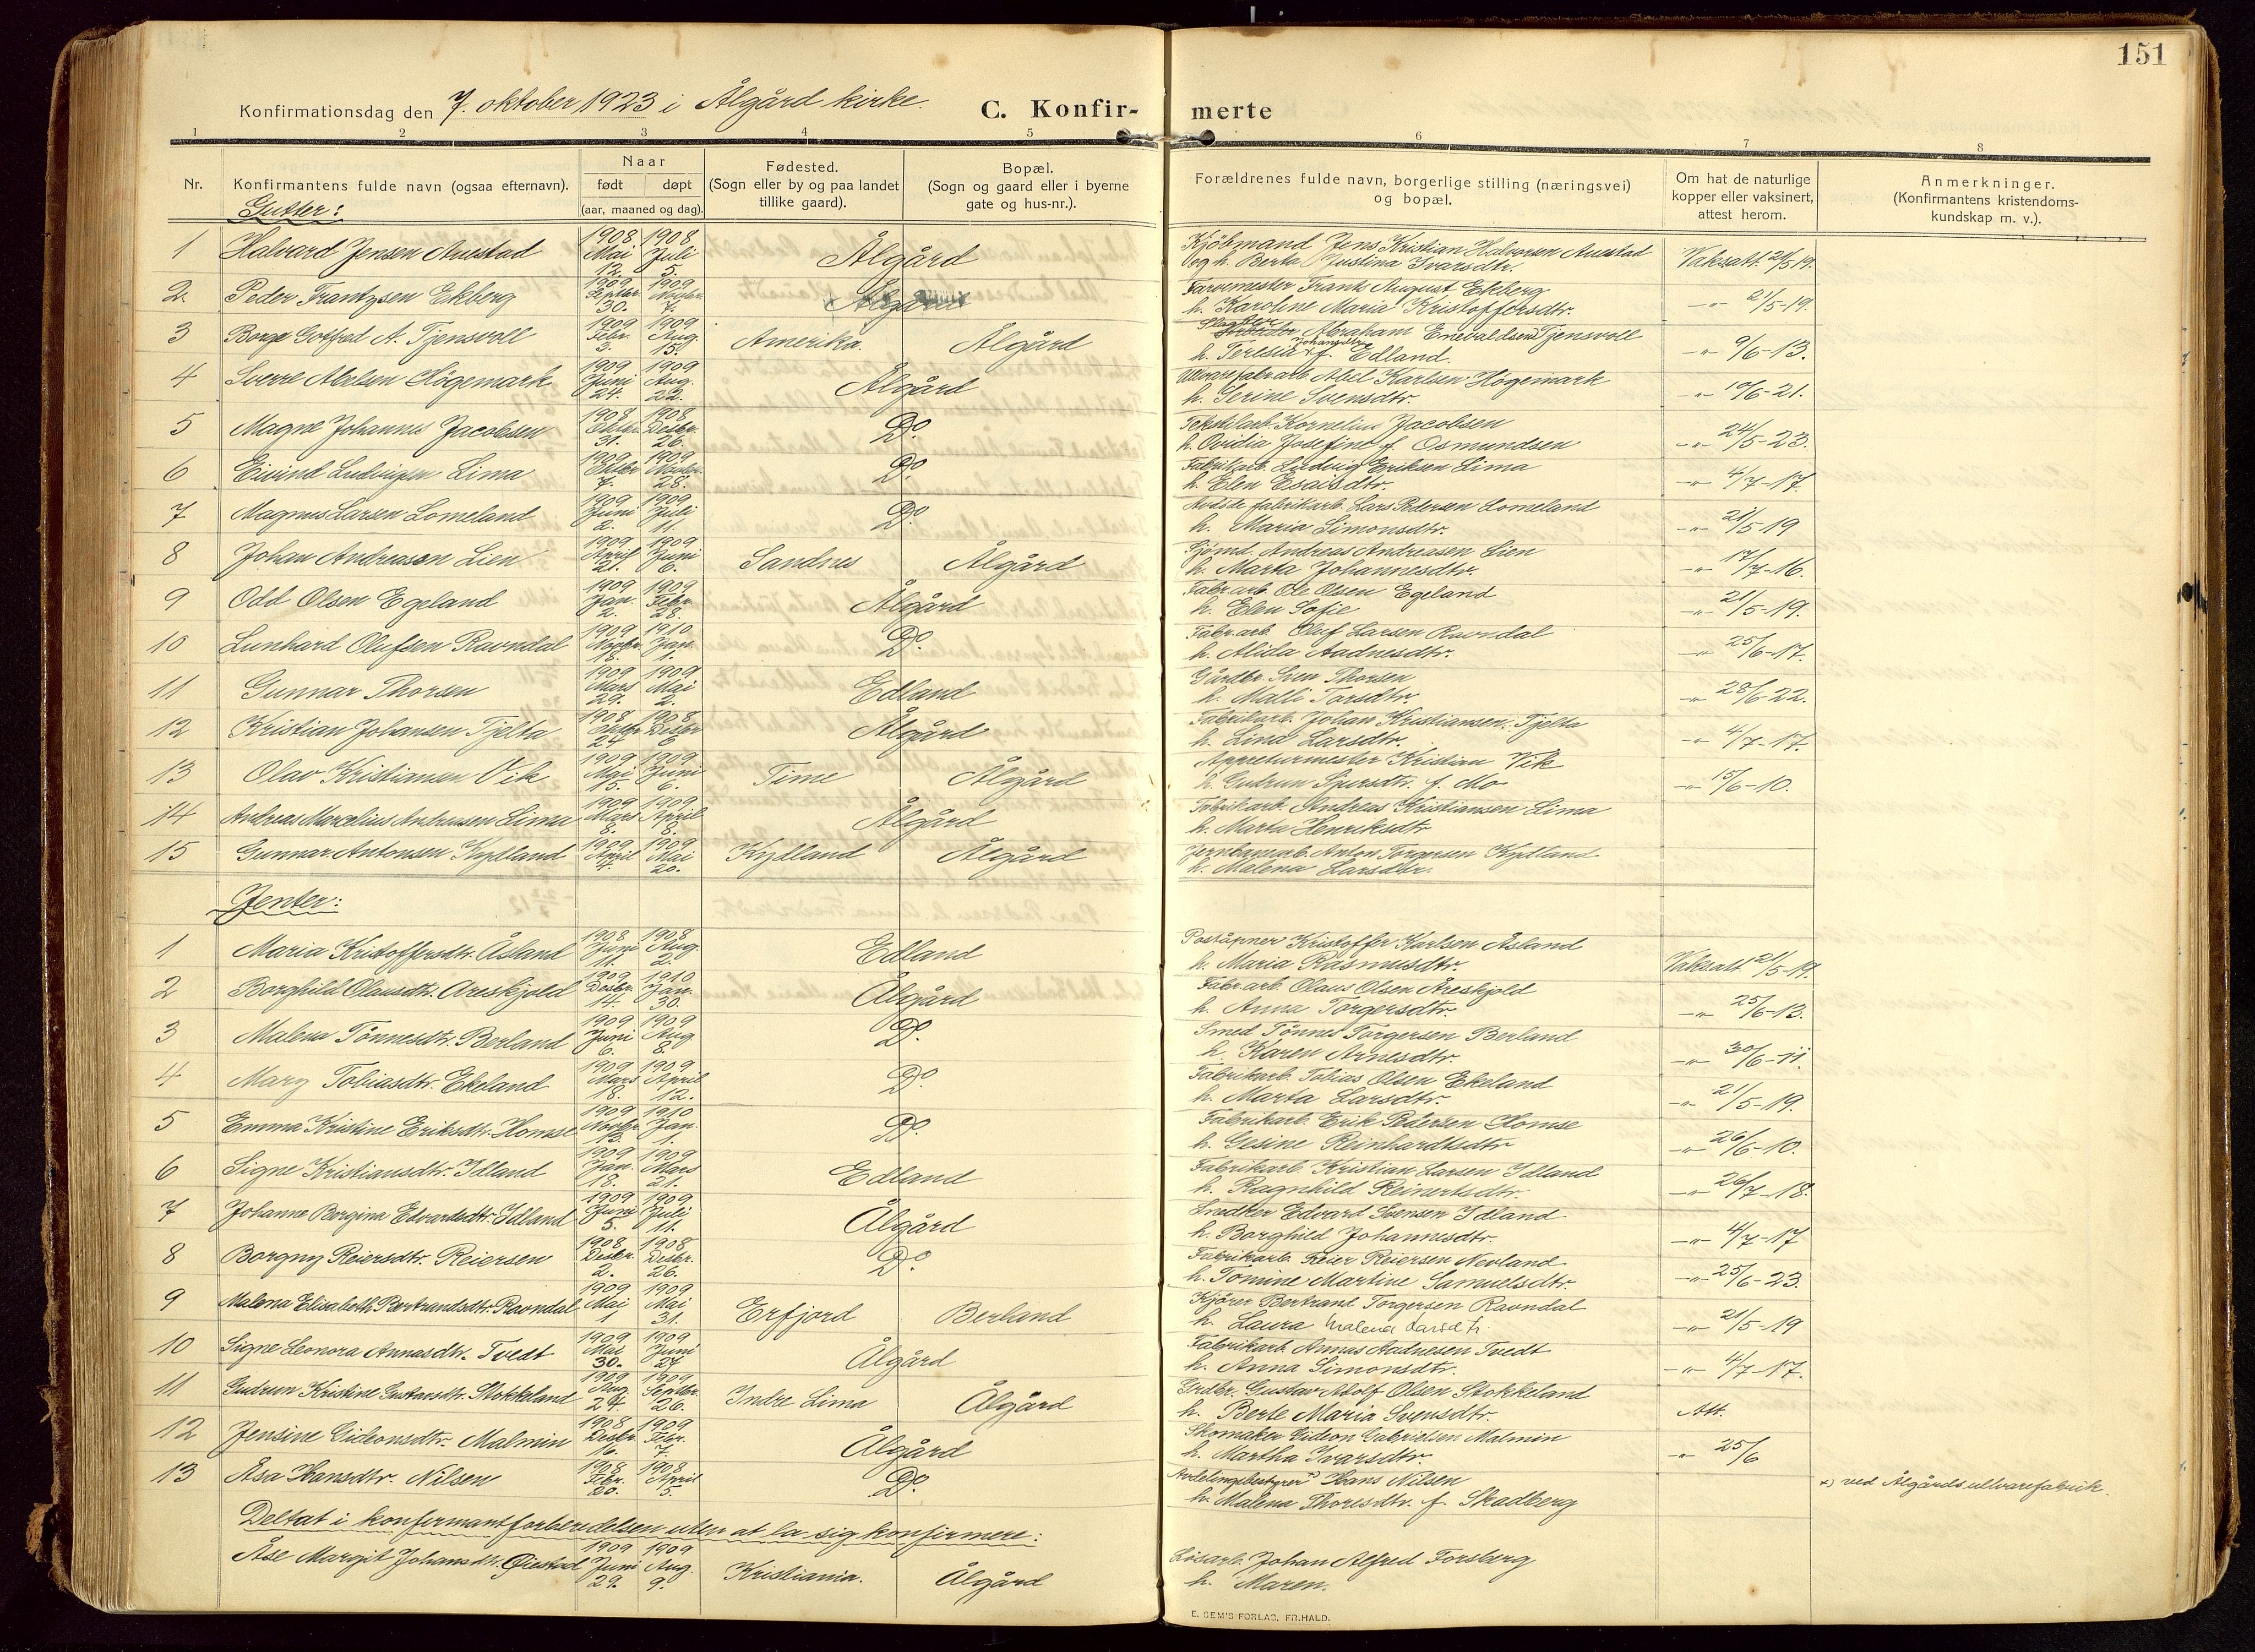 151
Konfirmationsdag den 7. oktober 1923 i Ålgård kirke.
C. Konfirmerte
1 2 3 4 5 6 7 8
Nr.
Konfirmantens fulde navn (ogsaa efternavn).
Naar
født døpt
(aar, maaned og dag).
Fødested.
(Sogn eller by og paa landet
tillike gaard).
Bopæl.
(Sogn og gaard eller i byerne
gate og hus-nr.).
Forældrenes fulde navn, borgerlige stilling (næringsvei)
og bopæl.
Om hat de naturlige
kopper eller vaksinert,
attest herom.
Anmerkninger.
(Konfirmantens kristendoms-
kundskap m. v.).
Gutter:
1 Halvard Jensen Auestad 1908 Mai 12. 1908 Juli 5. Ålgård Kjøbmand Jens Kristian Halvorsen Auestad Vaksatt. 21/5-19.
og h. Berta Justina Ivarsdtr.
2. Peder Frantzsen Ekberg 1909 Septbr. 30. 1909 Novbr. 7. Ålgård Farvemester Frants August Ekberg -"- 21/5-19.
h. Karoline Maria Kristoffersdtr.
3 Borge Gotfred A. Tjensvoll 1909 Febr. 3. 1909 Aug. 15. Amerika. Ålgård Slagter Abraham Enevaldsen Tjensvoll -"- 9/6-13.
h. Teresia Johansdtr. f. Edland.
4 Sverre Abelsen Høgemark 1909 Juni 24. 1909 Aug. 22. Ålgård Ulvarefabr.arb. Abel Karlsen Høgemark -"- 10/6-21.
h. Serine Svensdtr.
5 Magne Johannes Jacobsen 1908 Oktbr. 31. 1908 Desbr. 26. Do. Tekstilarb. Kornelius Jacobsen -"- 24/5-23.
h. Ovidia Josefine f. Osmundsen
6 Eivind Ludvigsen Lima 1909 Oktbr 7. 1909 Novbr. 28. Do. Fabrikarb. Ludvig Eriksen Lima -"- 4/7-17.
h. Elen Esaisdtr.
7 Magnus Larsen Lomeland 1909 Juni 2. 1909 Juli 11. Do. fabrikarb. Lars Pedersen Lomeland -"- 21/5-19
h. Maria Simonsdtr.
8 Johan Andreasen Lien 1909 April 21. 1909 Juni 6. Sandnes Ålgård Sjømd. Andreas Andreasen Lien -"- 17/7-16.
h. Marta Johannesdtr.
9 Odd Olsen Egeland 1909 Jan. 2. 1909 Febr. 28. Ålgård Fabr.arb. Ole Olsen Egeland -"- 21/5-19.
h. Elen Sofie
10 Lenhard Olufsen Ravndal 1909 Novbr. 18. 1910 Jan. 1. Do. Fabr.arb. Oluf Larsen Ravndal -"- 25/6-17.
h. Alida Aadnesdtr.
11 Gunnar Thorsen 1909 Mars 29. 1909 Mai 2. Edland Gårdbr. Sven Thorsen -"- 28/6-22.
h. Malli Tarsdtr.
12 Kristian Johansen Tjelta 1908 Oktbr 24. 1908 Desbr 6 Ålgård Fabrikarb. Johan Kristiansen Tjelta -"- 4/7-17.
h. Lina Larsdtr.
13 Olav Kristiansen Vik 1909 Mai 15. 1909 Juni 6. Time Ålgård Appreturmester Kristian Vik -"- 15/6-10.
h. Gudrun Sjursdtr. f. Mo
14 Andreas Marcelius Andreasen Lima 1909 Mars 8. 1909 April 8. Ålgård Fabrikarb. Andreas Kristiansen Lima
h. Marta Henriksdtr
15 Gunnar Antonsen Kydland 1909 April 4. 1909 Mai 20. Kydland Ålgård Jernbanearb. Anton Torgersen Kydland
h. Malena Larsdtr.
Jenter:
1 Maria Kristoffersdtr. Åsland 1908 Juni 11. 1908 Aug. 2. Edland Poståpner Kristoffer Karlsen Åsland Vaksatt. 21/5-19.
h. Maria Rasmusdtr.
2 Borghild Olausdtr. Areskjold 1909 Desbr. 14. 1910 Jan. 30. Ålgård Fabr.arb. Olaus Olsen Areskjold -"- 25/6-13.
h. Anna Torgersdtr.
3 Malena Tönnesdtr. Berland 1909 Juni 6. 1909 Aug 8. Do. Smed Tönnes Torgersen Berland -"- 30/6-11.
h. Karen Arnesdtr.
4 Mary Tobiasdtr. Ekeland 1909 Mars 18. 1909 April 12. Do. Fabrikarb. Tobias Olsen Ekeland -"- 21/5-19.
h. Marta Larsdtr.
5 Emma Kristine Eriksdtr. Homse 1909 Novbr 13. 1910 Jan. 1. Do. Fabrikarb. Erik Pedersen Homse -"- 26/6-10.
h. Gesine Reinhardtsdtr
6 Signe Kristiansdtr. Idland 1909 Jan. 18. 1909 Mars 21. Edland Fabrikarb. Kristian Larsen Idland -"- 26/7-18.
h. Ragnhild Reinertsdtr.
7 Johanne Borgina Edvardsdtr. Idland 1909 Juni 5. 1909 Juli 11. Ålgård Snedker Edvard Svensen Idland -"- 4/7-17
h. Borghild Johannesdtr.
8 Borgny Reiersdtr. Reiersen 1908 Desbr. 2. 1908 Desbr. 26. Do. Fabrikarb. Reier Reiersen Nevland -"- 25/6-23.
h. Tomine Martine Samuelsdtr.
9 Malena Elisabeth Bertrandsdtr. Ravndal 1909 Mai 1 1909 Mai 31. Erfjord Berland Kjører Bertrand Torgersen Ravndal -"- 21/5-19
h. Laura Malena Larsdtr.
10 Signe Leonora Annasdtr. Tvedt 1909 Mai 30. 1909 Juni 27 Ålgård Fabrikarb. Annas Aadnesen Tvedt -"- 4/7-17.
h. Anna Simonsdtr.
11 Gudrun Kristine Gustavsdtr. Stokkeland 1909 Aug. 24. 1909 Septbr. 26. Indre Lima Ålgård Grdbr. Gustav Adolf Olsen Stokkeland Att.
h. Berte Maria Svensdtr.
12 Jensine Gideonsdtr. Malmin 1908 Desbr. 16. 1909 Febr. 7. Ålgård Skomaker Gideon Gabrielsen Malmin -"- 25/6
h. Martha Ivarsdtr.
13 Åsa Hansdtr. Nilsen 1908 Febr. 20. 1908 April 5. Do. Avdelingsbestyrer x) Hans Nilsen x) ved Ålgårds ullvarefabrik.
h. Malena Thoresdtr. f. Skadberg
Deltat i konfirmantforberedelsen uten at la sig konfirmere:
Åse Margit Johansdtr. Øiestad 1909 Juni 29. 1909 Aug. 9. Kristiania. Ålgård Løsarb. Johan Alfred Forsberg
h. Maren.
E. SEM'S FORLAG, FR.HALD.